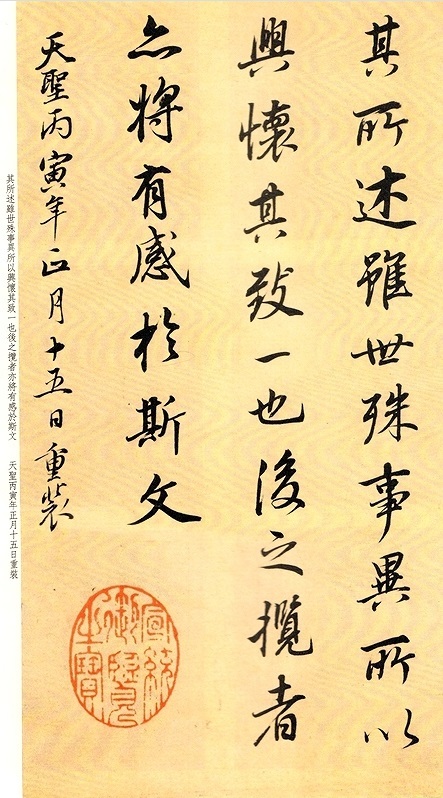 其所述雖世殊事異所以
興懷其致一也後之攬者
亦將有感於斯文
天聖丙寅年正月十五日重裝
宣統
御覽
之寶
其所述雖世殊事異所以興懷其致一也後之攬者亦將有感於斯文 天聖丙寅年正月十五日重裝